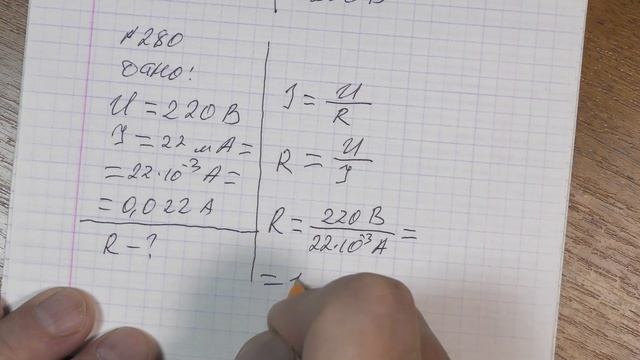 N280
Дано:
U = 220 В
I = 22 мА =
= 22·10⁻³ А =
= 0,022 А
R - ?
I = U/R
R = U/I
R = 220 В / 22·10⁻³ А =
=